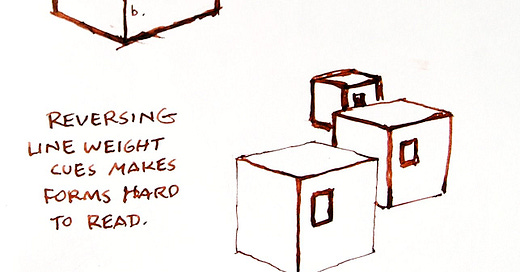 b.
REVERSING
LINE WEIGHT
CUES MAKES
FORMS HARD
TO READ.